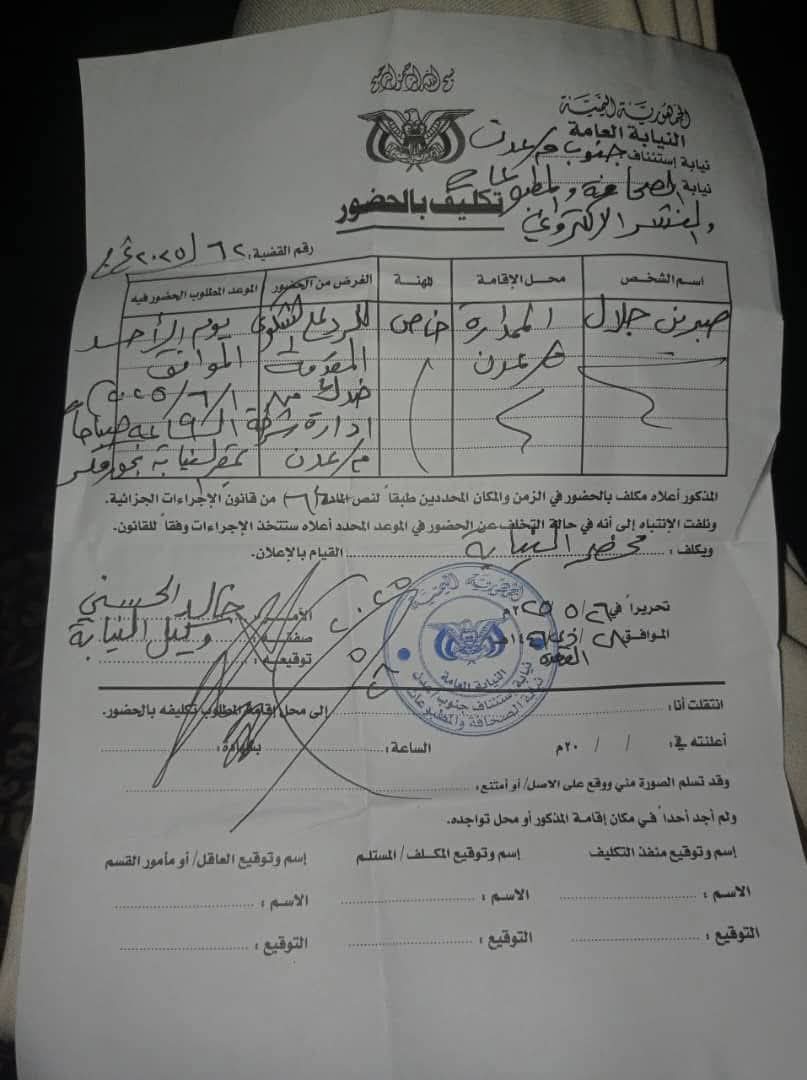 بسم الله الرحمن الرحيم
الجمهورية اليمنية
النيابة العامة
نيابة إستئناف جنوب م/عدن
نيابة الصحافة والمطبوعات
والنشر الإلكتروني
تكليف بالحضور
رقم القضية: ٦٢ / ٢٠٢٥
اسم الشخص
محل الإقامة
المهنة
الغرض من الحضور
الموعد المطلوب الحضور فيه
صبرين جلال
الممدارة
م/عدن
خاص
للرد على الشكوى
المقدمة
ضدك من
ادارة شرطة
م/عدن
يوم الأحد
الموافق
١/٦/٢٠٢٥م
الساعة ٩ صباحاً
بمقر النيابة بخور مكسر
المذكور أعلاه مكلف بالحضور في الزمن والمكان المحددين طبقاً لنص المادة من قانون الإجراءات الجزائية.
ونلفت الإنتباه إلى أنه في حالة التخلف عن الحضور في الموعد المحدد أعلاه ستتخذ الإجراءات وفقاً للقانون.
ويكلف: محضر النيابة القيام بالإعلان.
تحريراً في ٢٦/٥/٢٠٢٥م
الموافق ٢٨/ذي القعدة/١٤٤٦هـ
الآمر: خالد الحسني
صفته: وكيل النيابة
توقيعه:
الجمهورية اليمنية
النيابة العامة
نيابة إستئناف جنوب عدن
نيابة الصحافة والمطبوعات
انتقلت أنا: إلى محل إقامة المطلوب تكليفه بالحضور.
أعلنته في: / / ٢٠م الساعة: بشهادة:
وقد تسلم الصورة مني ووقع على الاصل/ أو أمتنع:
ولم أجد أحداً في مكان إقامة المذكور أو محل تواجده.
إسم وتوقيع منفذ التكليف
إسم وتوقيع المكلف/ المستلم
إسم وتوقيع العاقل/ أو مأمور القسم
الاسم:
الاسم:
الاسم:
التوقيع:
التوقيع:
التوقيع: